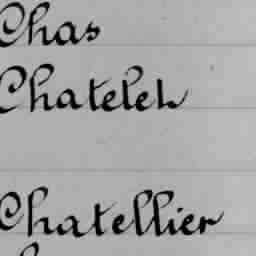 Chas
Chatelet
Chatellier